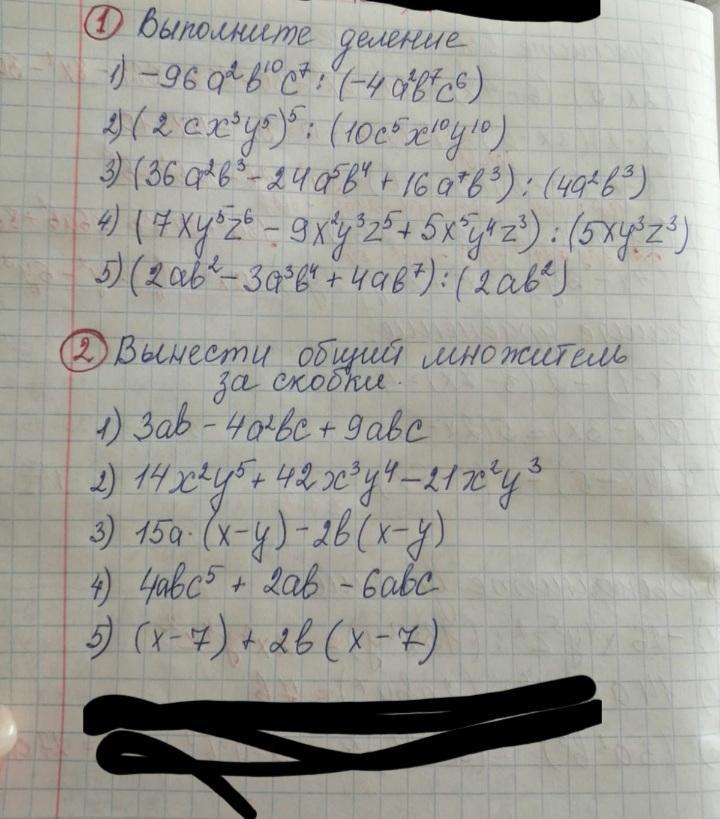 1 Выполните деление
1) -96a²b¹⁰c⁷ : (-4a²b⁷c⁶)
2) (2cx³y⁵)⁵ : (10c⁵x¹⁰y¹⁰)
3) (36a²b³ - 24a⁵b⁴ + 16a⁷b³) : (4a²b³)
4) (7xy⁵z⁶ - 9x²y³z⁵ + 5x⁵y⁴z³) : (5xy³z³)
5) (2ab² - 3a³b⁴ + 4ab⁷) : (2ab²)
2 Вынести общий множитель
за скобки.
1) 3ab - 4a²bc + 9abc
2) 14x²y⁵ + 42x³y⁴ - 21x²y³
3) 15a · (x-y) - 2b(x-y)
4) 4abc⁵ + 2ab - 6abc
5) (x-7) + 2b(x-7)